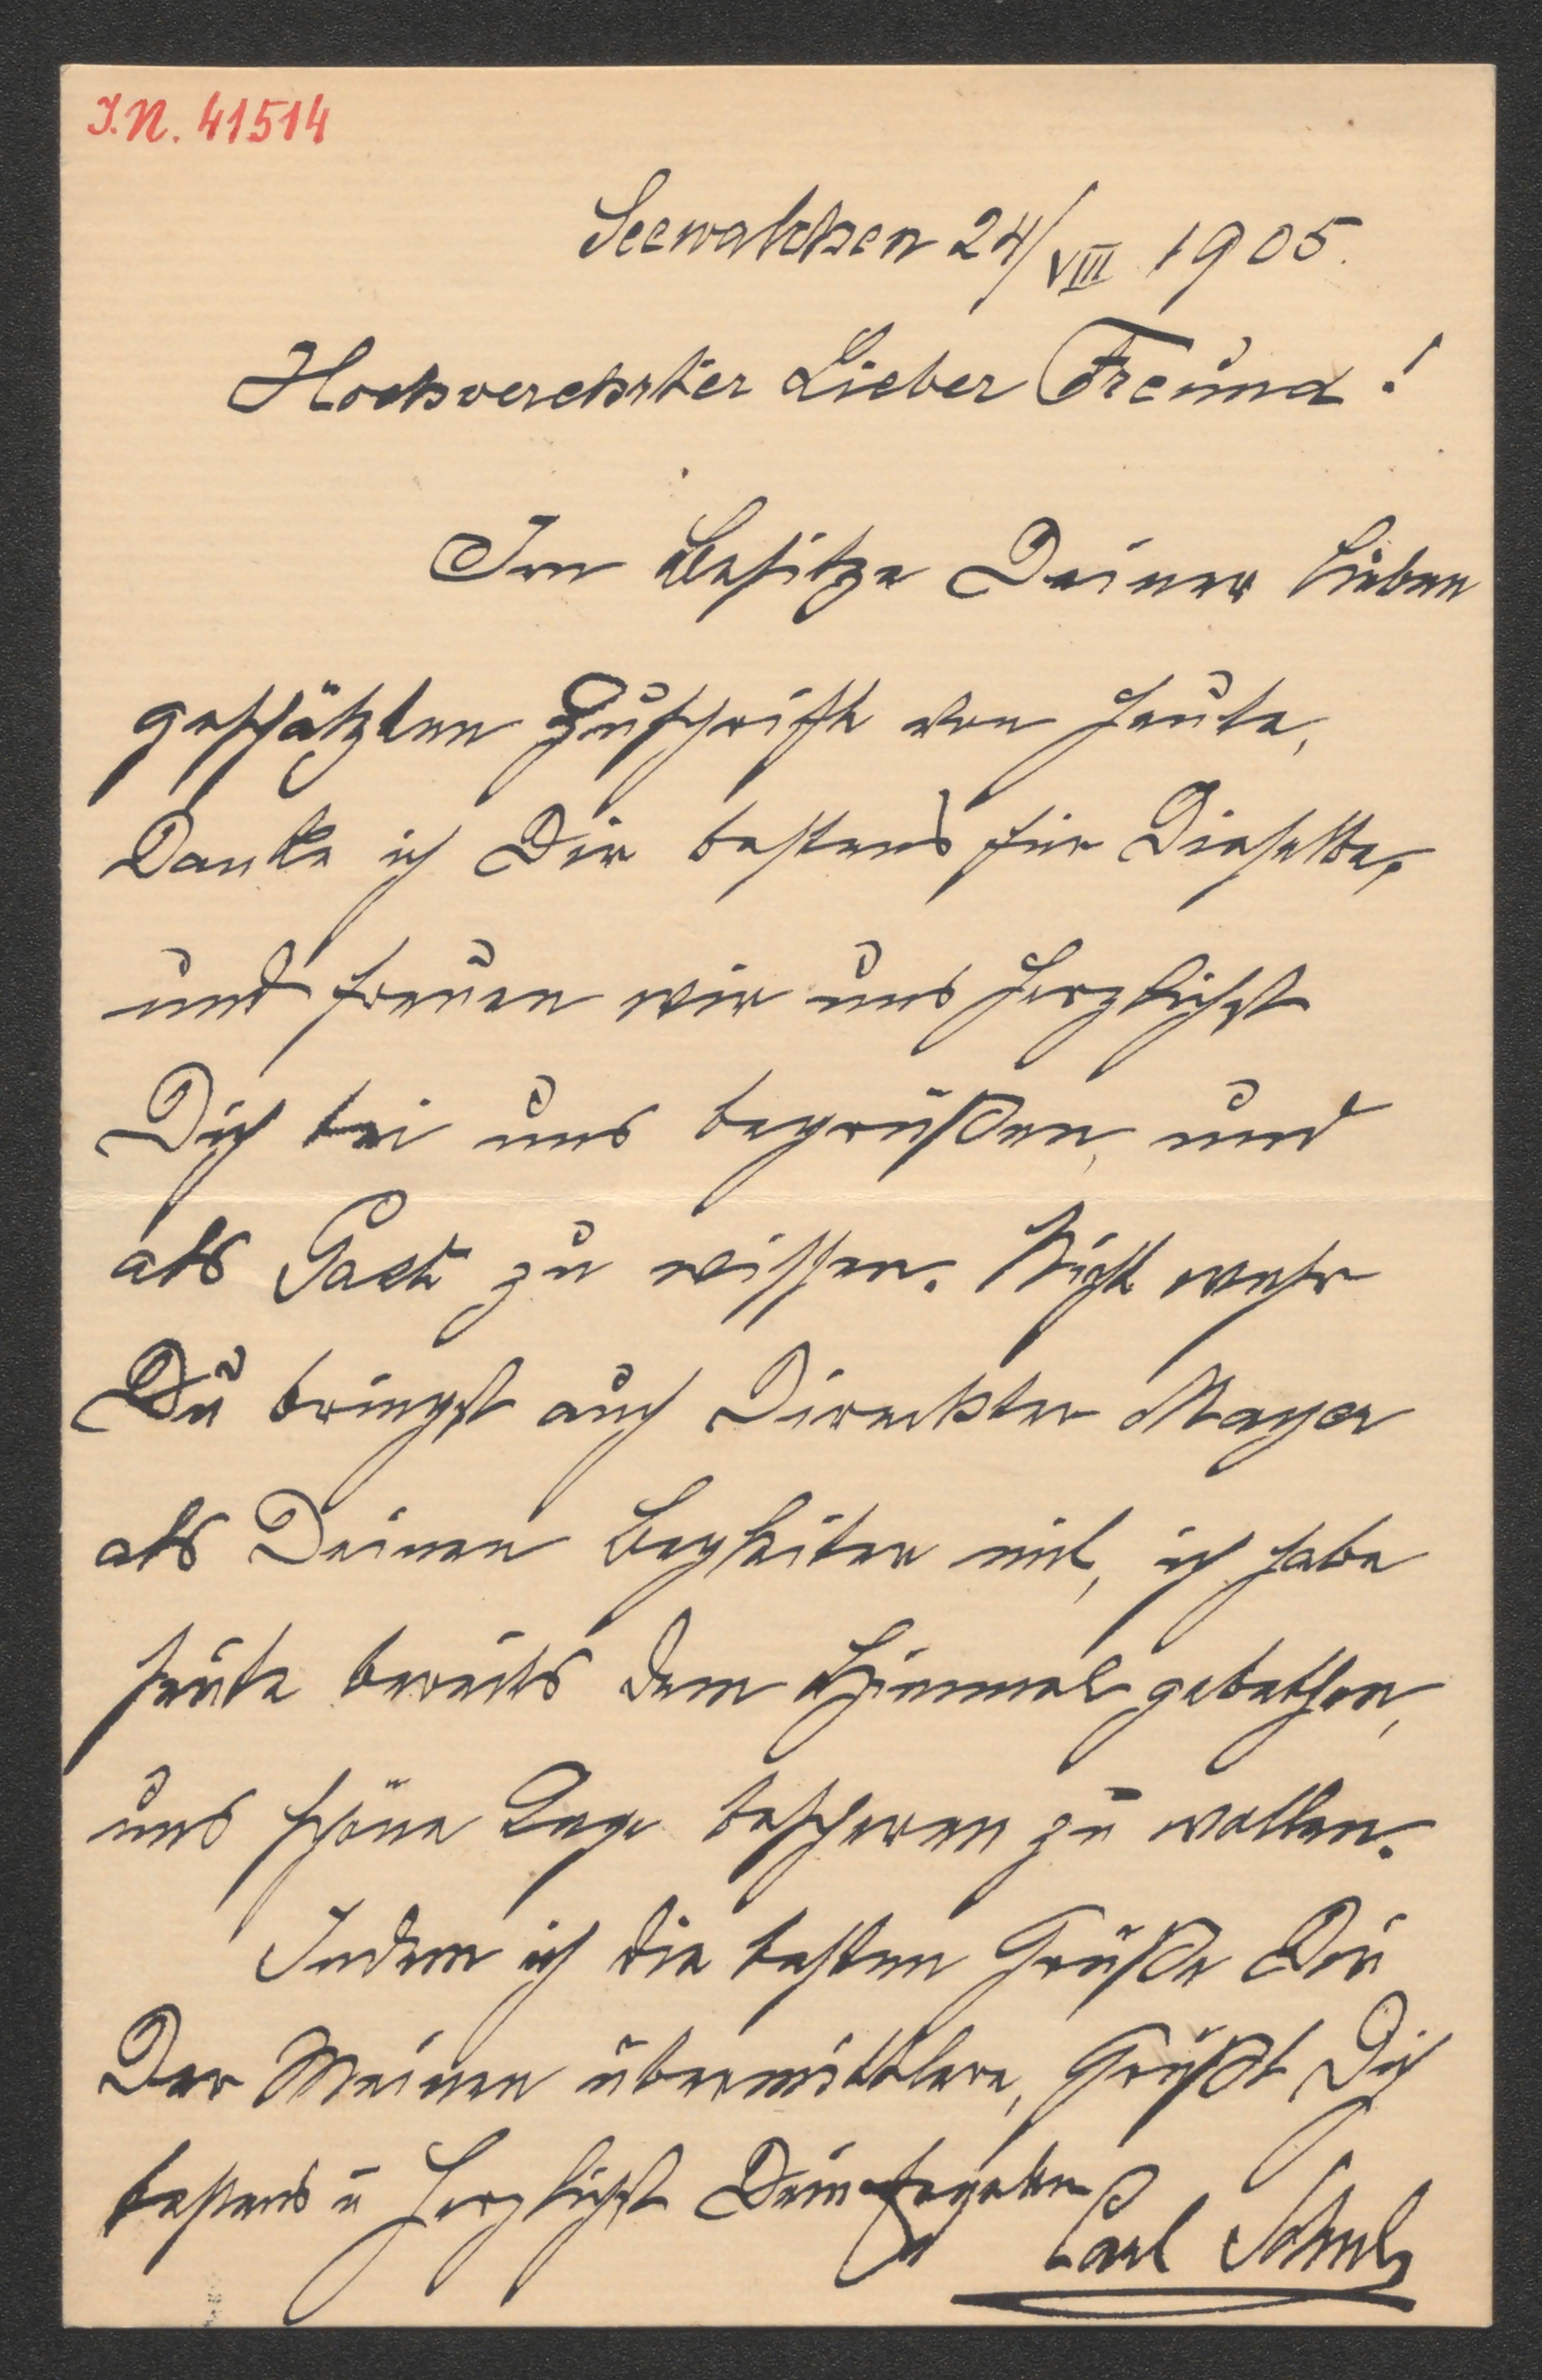 I.N. 41514
Seewalchen 24/VIII 1905.
Hochverehrter Lieber Freund!
Im Besitze Deiner lieben
geschätzten Zuschrift von heute,
Danke ich Dir bestens für Dieselbe,
und freuen wir uns herzlichst
Dich bei uns begrüßen, und
als Gast zu wissen. Nicht wahr
Du bringst auch Direktor Mayer
als Deinen Begleiter mit, ich habe
heute bereits dem Himmel gebethen,
uns schöne Tage bescheren zu wollen.
Indem ich die besten Grüße Dir
Der Meinen übermittlere, Grüßt Dich
bestens u herzlichst Dein ergebener
Carl Schulz